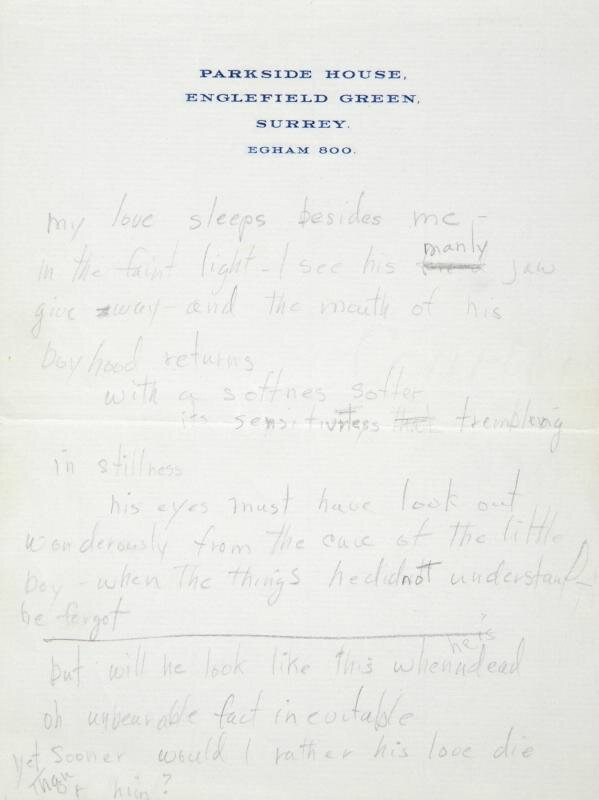 PARKSIDE HOUSE,
ENGLEFIELD GREEN,
SURREY.
EGHAM 800.
my love sleeps besides me -
in the faint light - I see his manly jaw
give away - and the mouth of his
boyhood returns
with a softnes softer
its sensitivness trembling
in stillness
his eyes must have look out
wonderously from the cave of the little
boy - when the things he did not understand -
he forgot
but will he look like this when he is dead
oh unbearable fact inevitable
yet sooner would I rather his love die
than him?